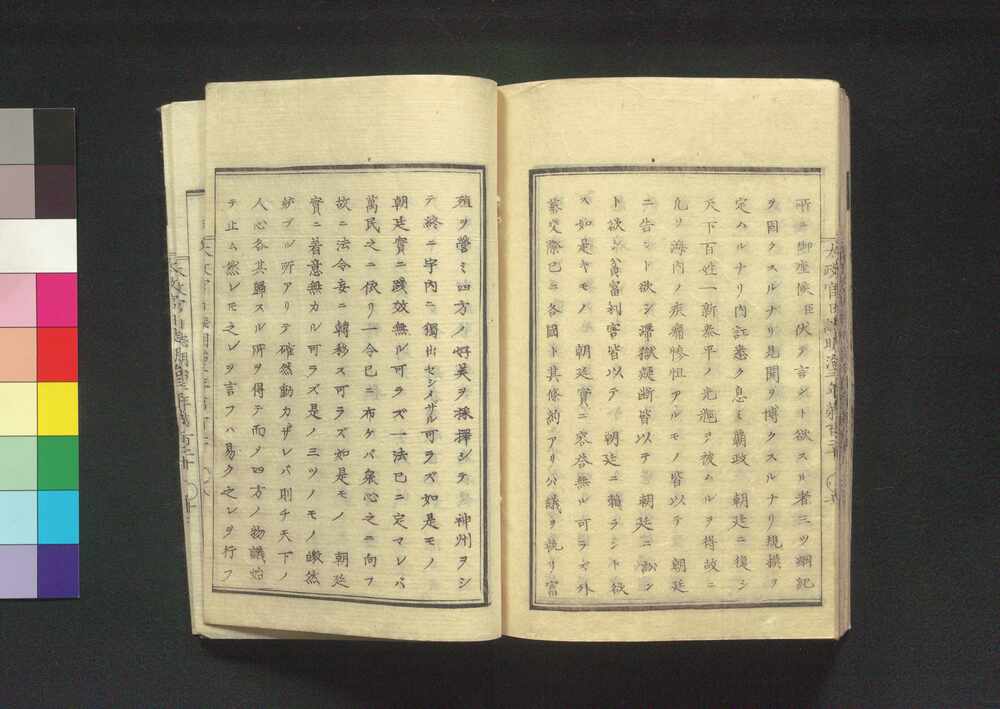 所ニ御座候臣伏テ言シト欲スル者三ツ綱紀
ヲ固クスルナリ見聞ヲ博クスルナリ規模ヲ
定ムルナリ内訌塞ク息ミ覇政 朝廷ニ復シ
天下百姓一新泰平ノ光耀ヲ被ムルヲ得故ニ
凡ソ海内ノ疾痛惨怛アルモノ皆以テ 朝廷
ニ告ント欲シ滞獄疑断皆以テ 朝廷ニ訟ン
ト欲 公富利害皆以テ 朝廷ニ籍ラント欲
ス如是ヤモノ 朝廷實ニ 無ル可ラゼ外
蕃交際已ニ各國ト其條約アリ公議ヲ執リ富
殖ヲ營ミ四方ノ好美ヲ採擇シテ 神州ヲシ
テ終ニ宇内ニ獨出セシメザル可ラズ如是モノ
朝廷實ニ踐效無ル可ラズ一法已ニ定マレバ
萬民之ニ依リ一令已ニ布ケバ衆心之ニ向フ
故ニ法令妄ニ轉移ス可ラズ如是モノ 朝廷
實ニ着意無カル可ラズ是ノ三ツノモノ皦然
ブル所アリテ確然動カザレバ則チ天下ノ
人心各其歸スル所ヲ得テ而ノ四方ノ物議始
テ止ム然レモ之レヲ言フハ易ク之レヲ行フ